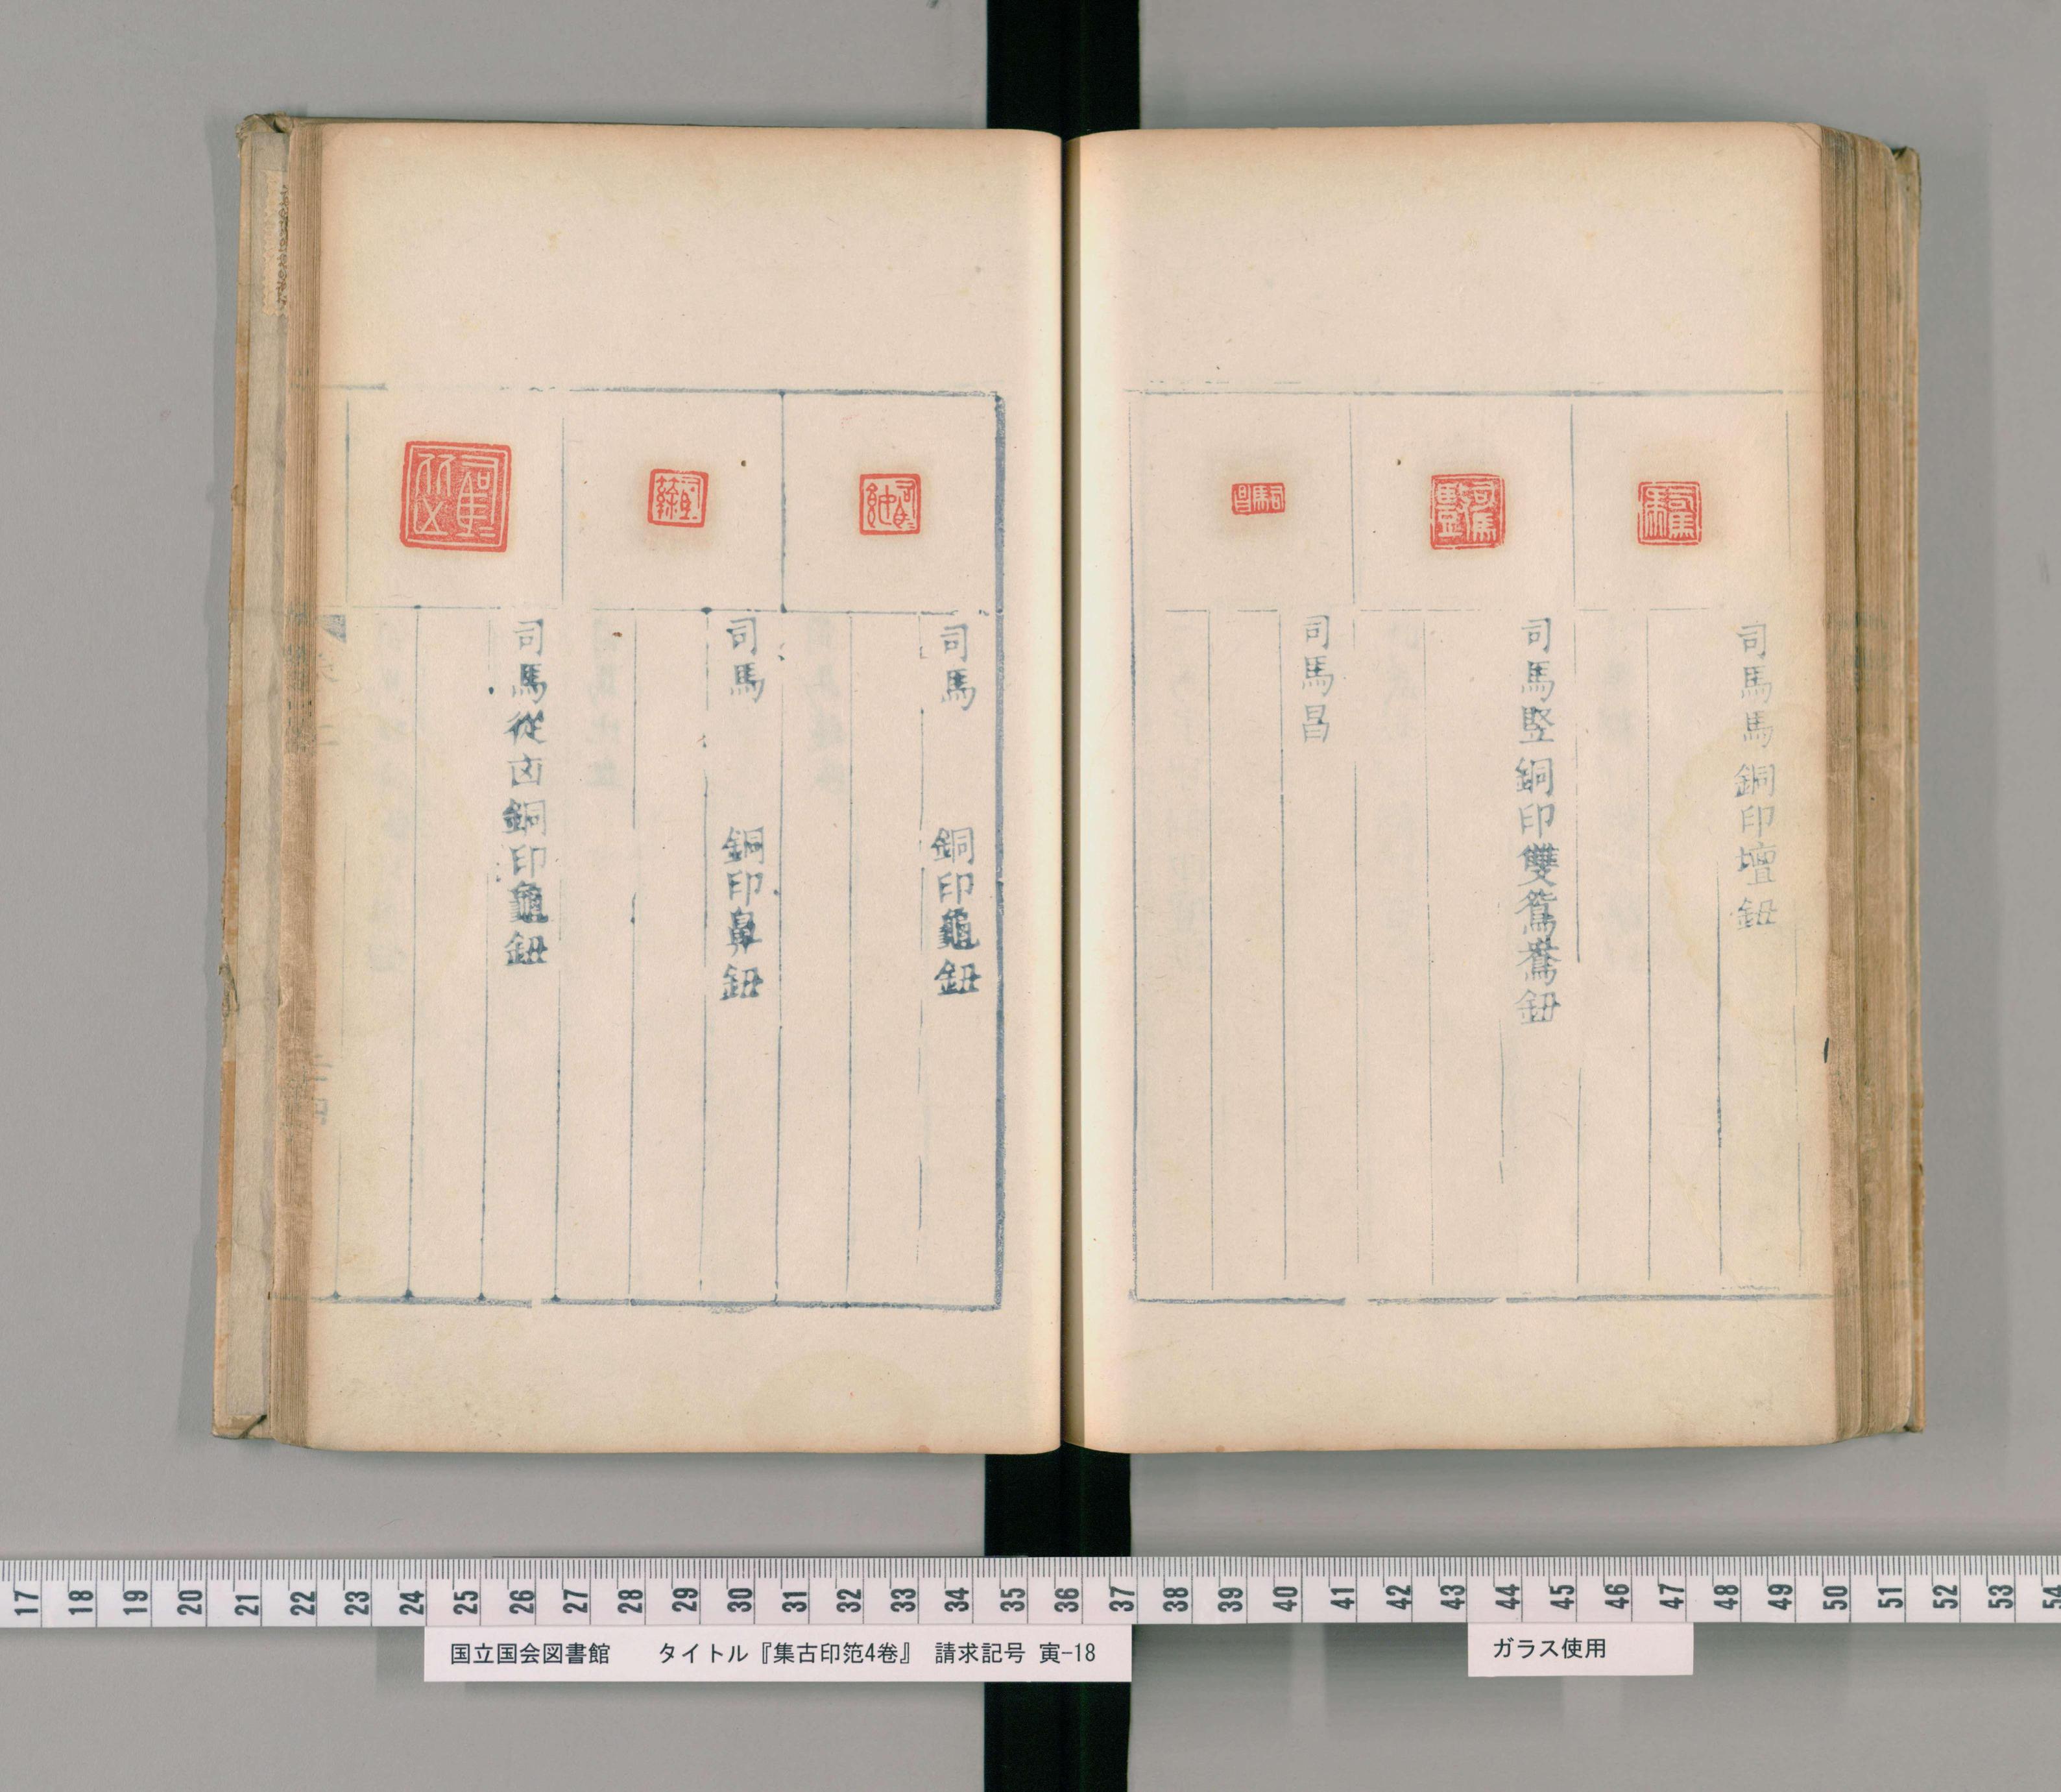 司馬馬銅印壇鈕
司馬竪銅印雙鴛鴦鈕
司馬昌
司馬　　銅印龜鈕
司馬　　銅印鼻鈕
司馬從凶銅印龜鈕
17 18 19 20 21 22 23 24 25 26 27 28 29 30 31 32 33 34 35 36 37 38 39 40 41 42 43 44 45 46 47 48 49 50 51 52 53 54
国立国会図書館　タイトル『集古印笵4巻』　請求記号 寅-18
ガラス使用